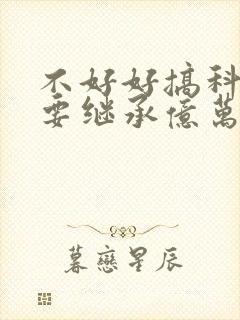 不好好搞科
要继承億萬
暮戀星辰